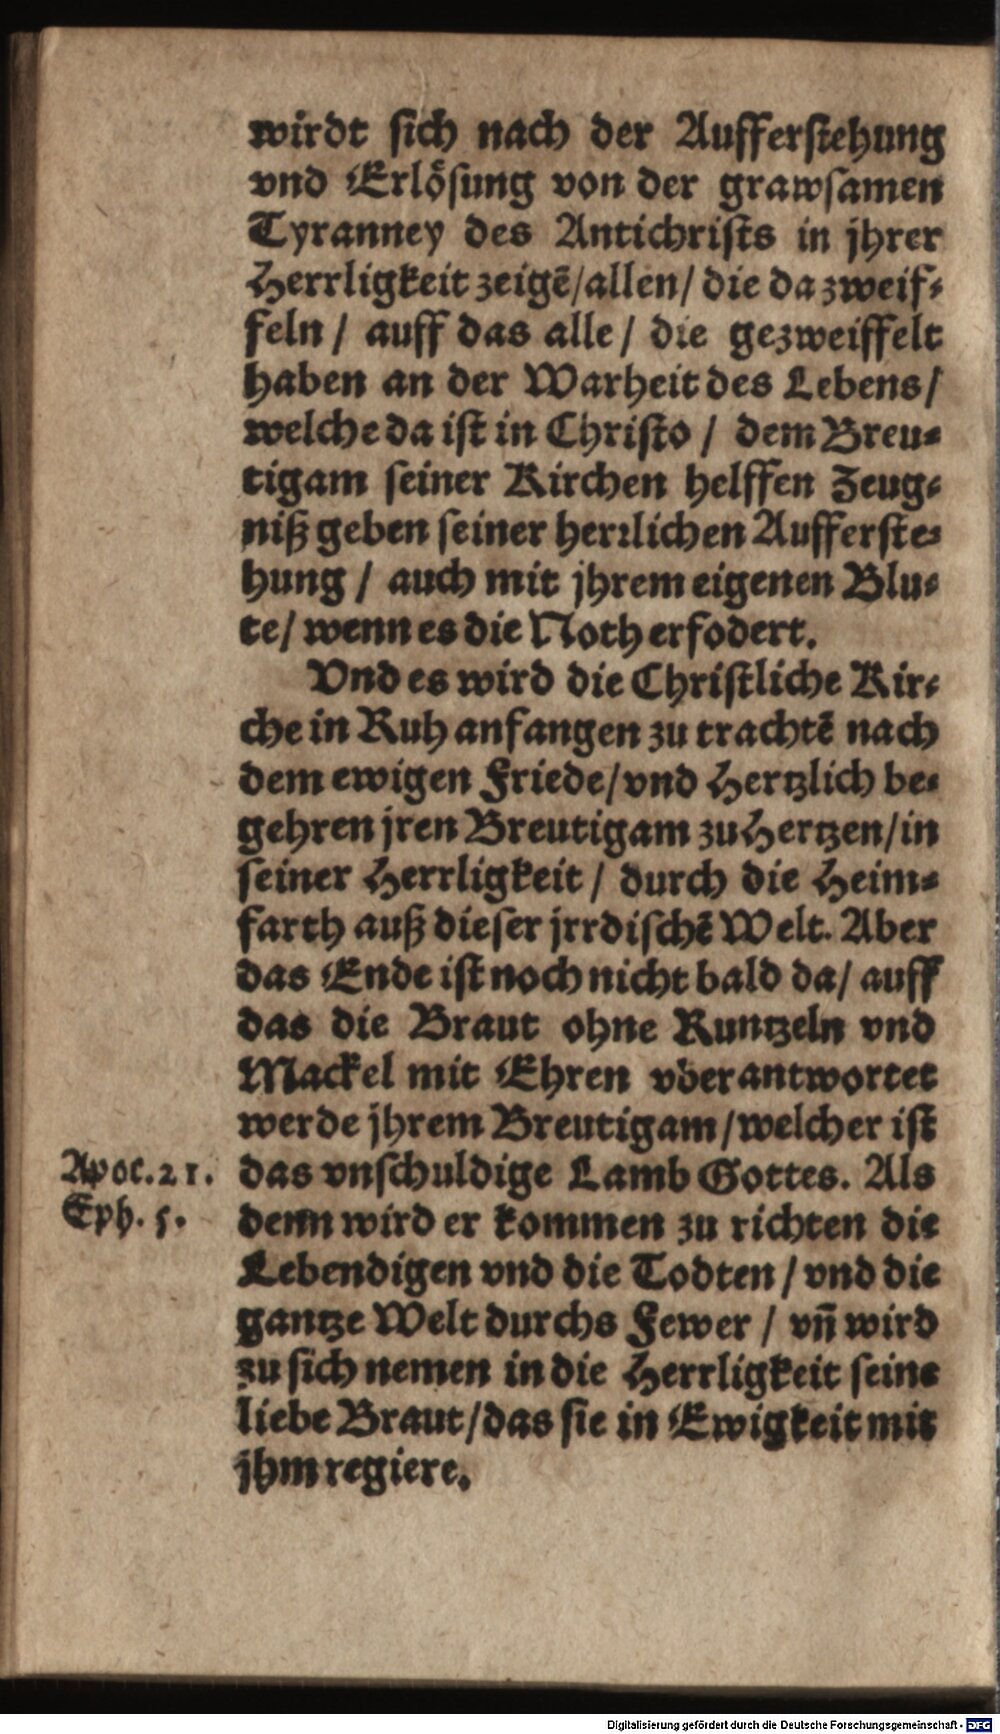 wirdt sich nach der Aufferstehung
vnd Erlösung von der grawsamen
Tyranney des Antichrists in jhrer
Herrligkeit zeigẽ/allen/ die da zweif-
feln / auff das alle / die gezweiffelt
haben an der Warheit des Lebens/
welche da ist in Christo / dem Breu-
tigam seiner Kirchen helffen Zeug-
niß geben seiner herꝛlichen Aufferste-
hung / auch mit jhrem eigenen Blu-
te/ wenn es die Noth erfodert.
Vnd es wird die Christliche Kir-
che in Ruh anfangen zu trachtẽ nach
dem ewigen Friede/vnd Hertzlich be-
gehren jren Breutigam zu Hertzen/in
seiner Herrligkeit / durch die Heim-
farth auß dieser jrrdischẽ Welt. Aber
das Ende ist noch nicht bald da/ auff
das die Braut ohne Runtzeln vnd
Mackel mit Ehren vberantwortet
werde jhrem Breutigam/welcher ist
Apoc. 21. das vnschuldige Lamb Gottes. Als
Eph. 5. denn wird er kommen zu richten die
Lebendigen vnd die Todten / vnd die
gantze Welt durchs Fewer / vñ wird
zu sich nemen in die Herrligkeit seine
liebe Braut/das sie in Ewigkeit mit
jhm regiere.
Digitalisierung gefördert durch die Deutsche Forschungsgemeinschaft - DFG